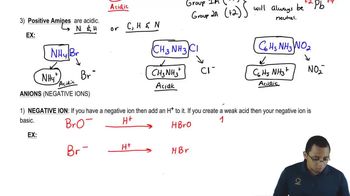 Group 1A
Group 2A (+2)
Acidic
will always be
neutral.
+2
Pb
+4
3) Positive Amines are acidic.
N & H or C, H & N
EX:
NH4Br
CH3NH3Cl
C6H5NH3NO2
NH4+ Br-
CH3NH3+ Cl-
C6H5NH3+ NO2-
Acidic
Acidic
Acidic
ANIONS (NEGATIVE IONS)
1) NEGATIVE ION: If you have a negative ion then add an H+ to it. If you create a weak acid then your negative ion is
basic.
EX:
BrO- H+ HBrO
Br- H+ HBr